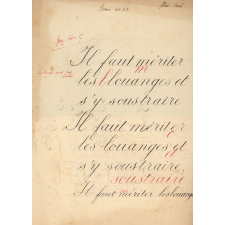 Il faut mériter
les louanges et
s'y soustraire
Il faut mériter
les louanges et
s'y soustraire.
soustraire
Il faut mériter les louanges